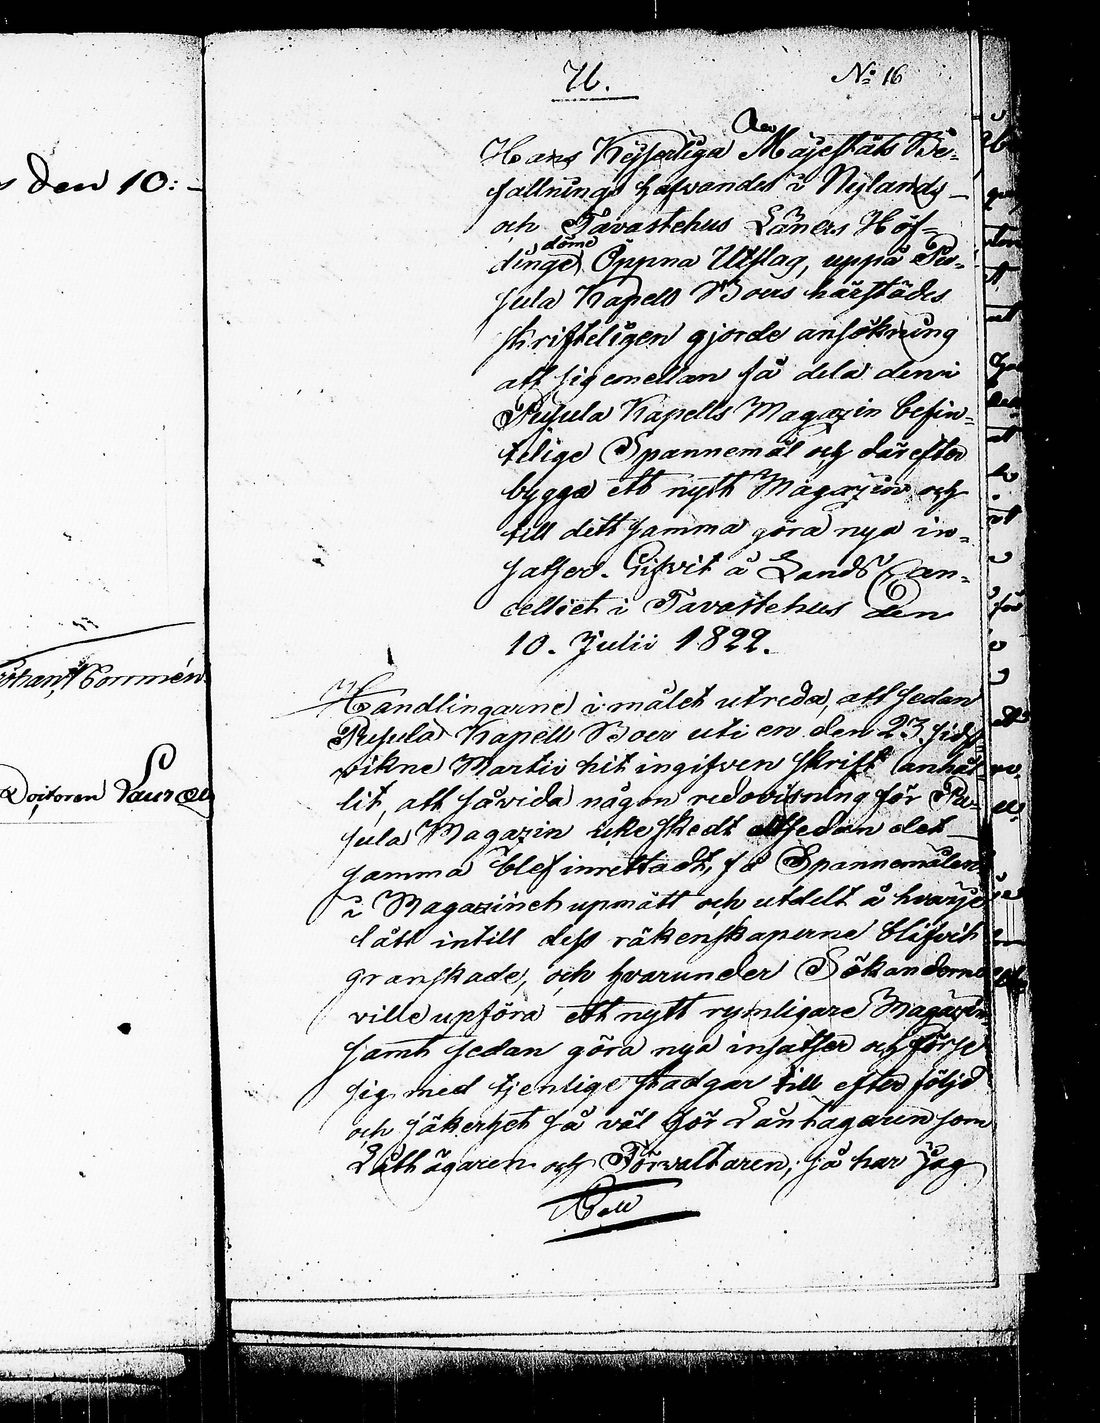 U.
No: 16
s den 10:-
Hans Kejserliga Majestäts Be-
fallnings hafvandes i Nylands
och Tavastehus Läners Höf-
dingedöme Öppna Utslag, uppå Pu-
sula Kapell Boers härstädes
skrifteligen gjorde ansökning
att sig emellan få dela den i
Pusula Kapells Magazin befin-
telige Spannemål och därefter
bygga ett nytt Magazin och
till dett samma göra nya in-
satser. Gifvit å Lands Can-
celliet i Tavastehus den
10. Julii 1822.
Handlingarne i målet utreda, att sedan
Pusula Kapell Boer uti en den 23. sidst-
vikne Martii hit ingifven skrift anhål-
lit, att såvida någon redovisning för Pu-
sula Magazin icke skedt alltsedan det
samma blef inrettadt, få Spannemålen
i Magazinet upmätt och utdelt å hvarje
lått intill dess räkenskaperne blifvit
granskade, och hvarunder Sökanderne
ville upföra ett nytt rymligare Magazin
samt sedan göra nya insatser och förse
sig med tjenlige stadgar till efterföljd
och säkerhet så väl för Låntagaren som
Låttägaren och Förvaltaren; så har Jag
Doitoren Laurell